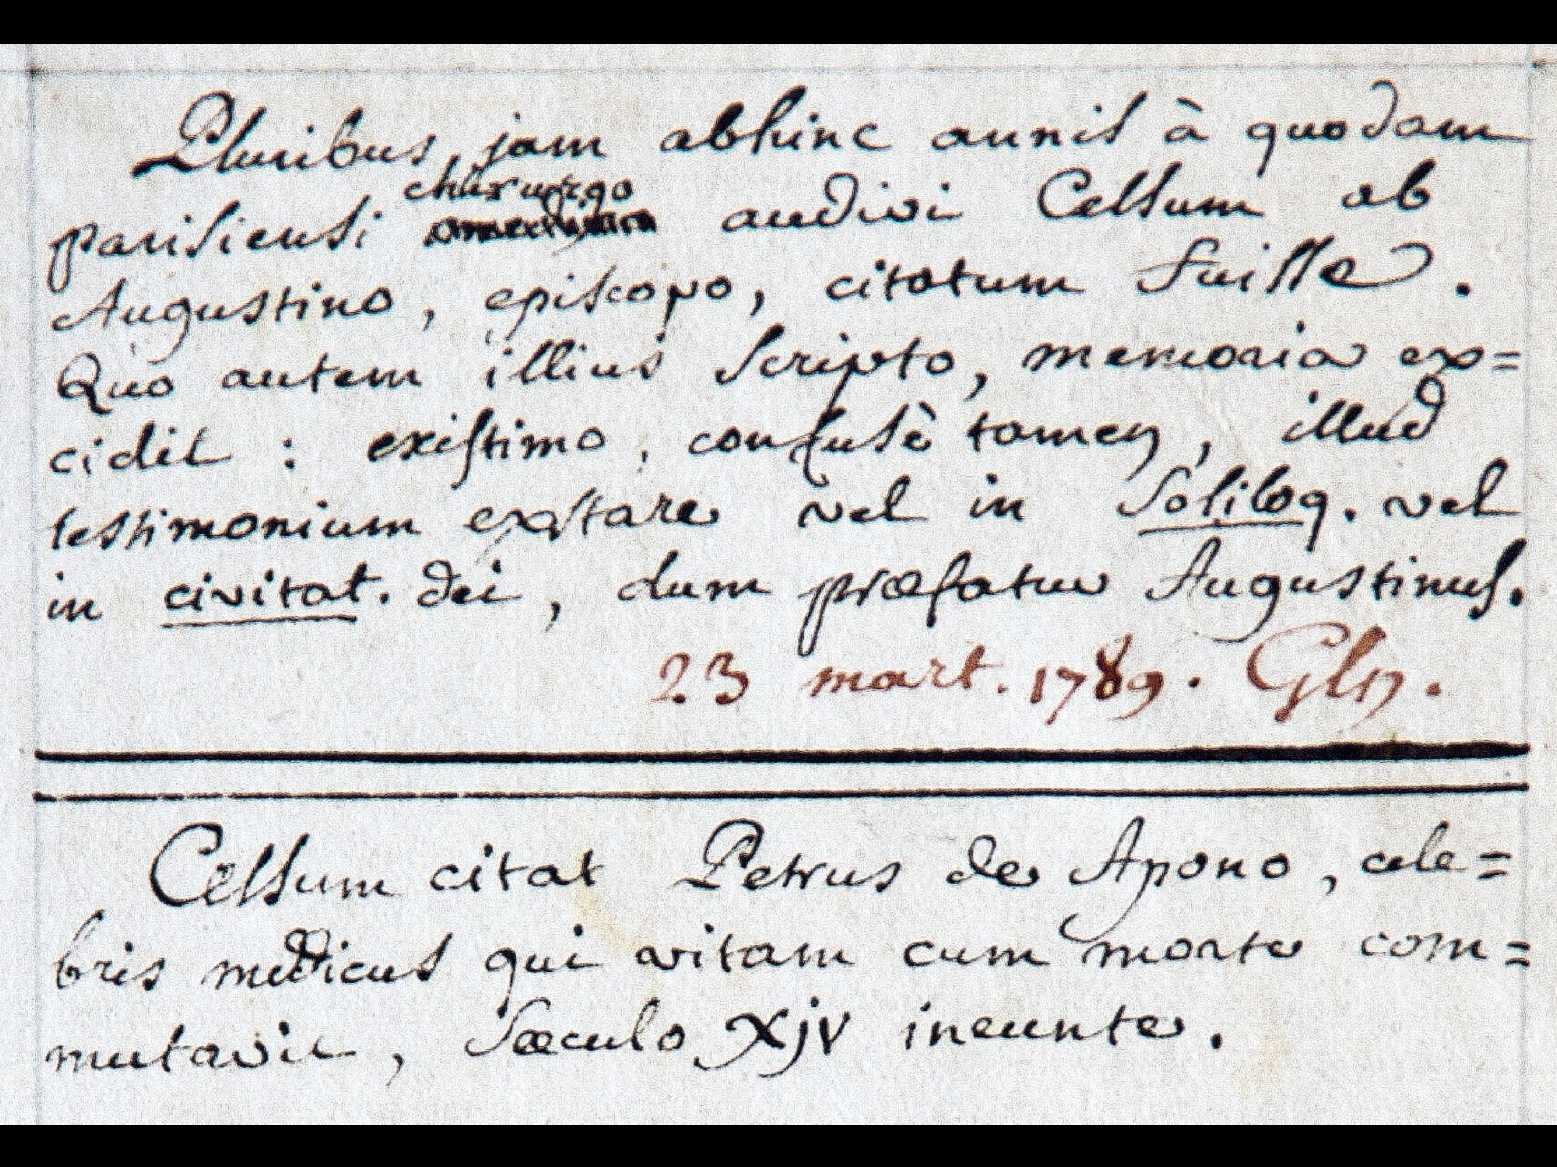 Pluribus, jam abhinc annis à quodam
chirurgo
parisiensi audivi Celsum ab
Augustino, episcopo, citatum fuisse.
Quo autem illius scripto, memoria ex=
cidit : existimo, confusè tamen, illud
testimonium exstare vel in Soliloq. vel
in civitat. dei, dum præfatur Augustinus.
23 mart. 1789. Gln.
Celsum citat Petrus de Apono, cele=
bris medicus qui vitam cum morte com=
mutavit, sæculo XjV ineunte.